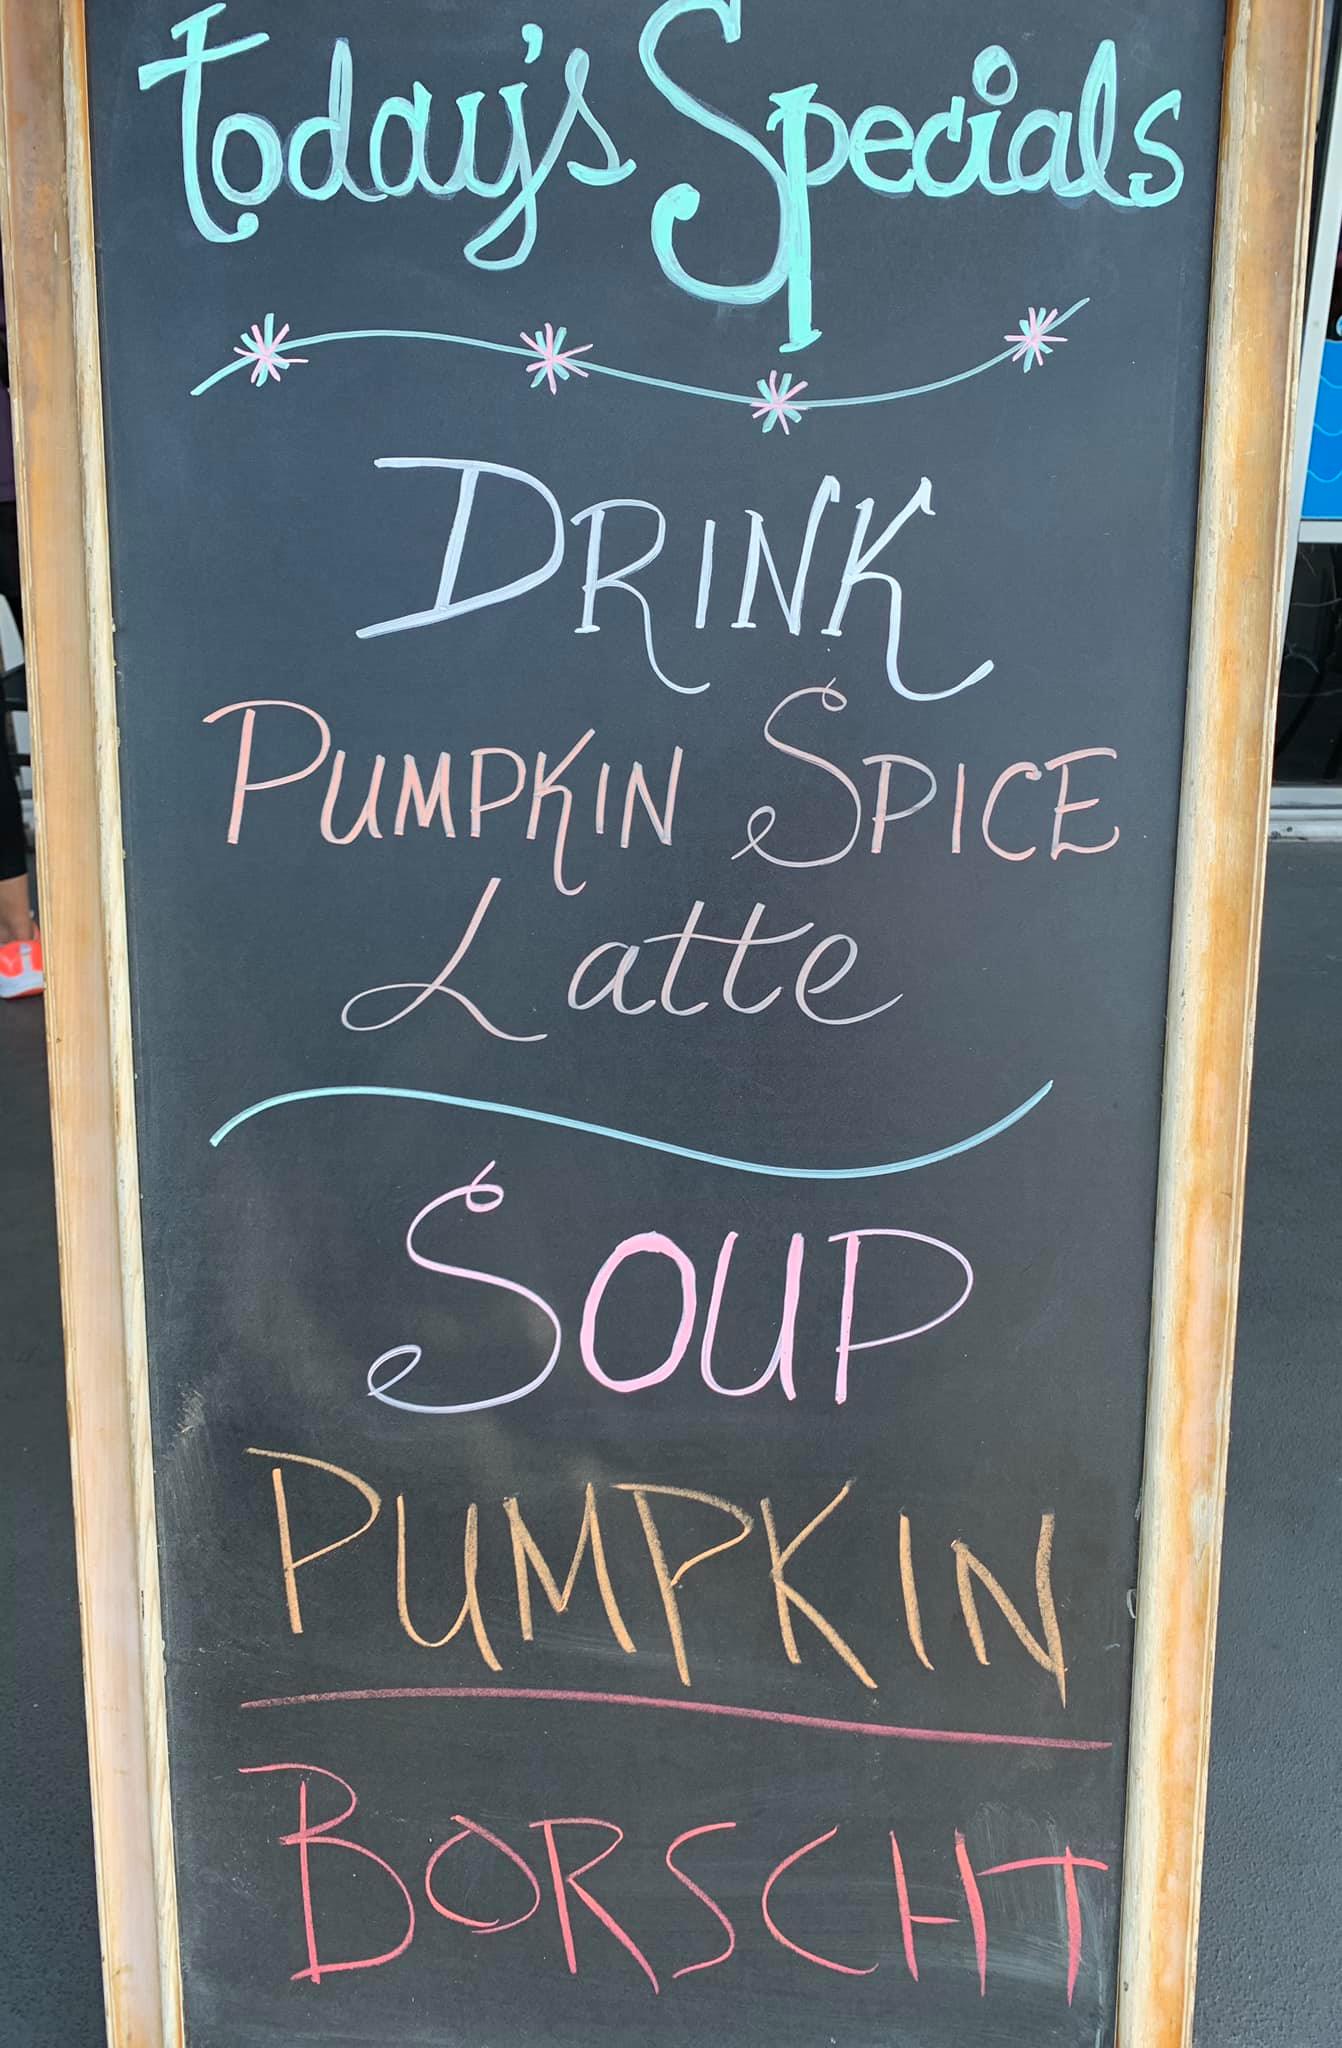 Today's Specials
DRINK
PUMPKIN SPICE
Latte
SOUP
PUMPKIN
BORSCHT